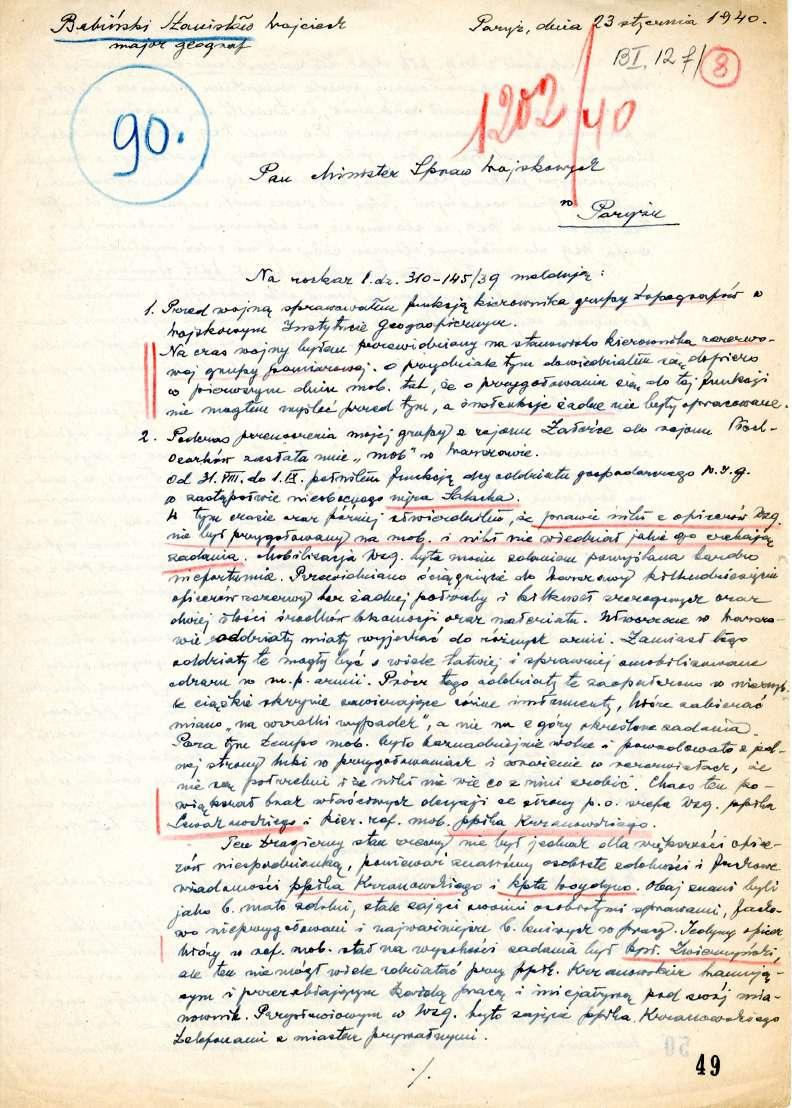 Babiński Stanisław Wojciech
major geograf
Paryż, dnia 23 stycznia 1940.
BI, 12 f/ 8
90.
1202/40
Pan Minister Spraw Wojskowych
w
Paryżu
Na rozkaz l.dz. 310-145/39 melduję:
1. Przed wojną sprawowałem funkcją kierownika grupy topografów w
Wojskowym Instytucie Geograficznym.
Na czas wojny byłem przewidziany na stanowisko kierownika rezerwo-
wej grupy pomiarowej. O przydziale tym dowiedziałem się dopiero
w pierwszym dniu mob. tak, że o przygotowaniu się do tej funkcji
nie mogłem myśleć przed tym, a instrukcje żadne nie były opracowane.
2. Podczas przenoszenia mojej grupy z rejonu Załoźce do rejonu
zastała mnie „mob" w Warszawie.
Od 31.VIII. do 1.IX. pełniłem funkcję dcy oddziału gospodarczego W.I.G.
w zastępstwie nieobecnego mjra
W tym czasie oraz później stwierdziłem, że prawie nikt z oficerów Wig.
nie był przygotowany na mob. i nikt nie wiedział jakie go czekają
zadania. Mobilizacja Wig. była moim zdaniem pomyślana bardzo
niefortunnie. Przewidziano ściągnięcie do Warszawy kilkudziesięciu
oficerów rezerwy bez żadnej potrzeby i kilkuset szeregowych oraz
dużej ilości środków lokomocji oraz materiału. Utworzone w Warsza-
wie oddziały miały wyjechać do różnych armii. Zamiast tego
oddziały te mogły być o wiele łatwiej i sprawniej zmobilizowane
odrazu w m.p. armii. Prócz tego oddziały te zaopatrzono w niezwyk-
le ciężkie skrzynie zawierające różne instrumenty, które zabierać
miano „na wszelki wypadek", a nie na z góry określone zadania.
Poza tym tempo mob. było beznadziejnie wolne i powodowało z jed-
nej strony luki w przygotowaniach i wrażenie w rezerwistach, że
nie są potrzebni i że nikt nie wie co z nimi zrobić. Chaos ten po-
większał brak właściwych decyzji ze strony p.o. szefa Wig. ppłka
i kier. ref. mob. ppłka Krzanowskiego.
Ten tragiczny stan rzeczy nie był jednak dla większości ofice-
rów niespodzianką, ponieważ znaliśmy osobiste zdolności i fachowe
wiadomości ppłka Krzanowskiego i kpta Woydyno. Obaj znani byli
jako b. mało zdolni, stale zajęci swoimi osobistymi sprawami, facho-
wo nieprzygotowani i najważniejsze b. leniwych w pracy. Jedyny oficer
który w ref. mob. stał na wysokości zadania był kpt.
ale ten nie mógł wiele zdziałać przy ppłk. Krzanowskim hamują-
cym i przerabiającym każdą pracę i inicjatywę pod swój mia-
nownik. Przysłowiowym w Wig. było zajęcie ppłka Krzanowskiego
telefonami z miastem prywatnymi.
./.
49